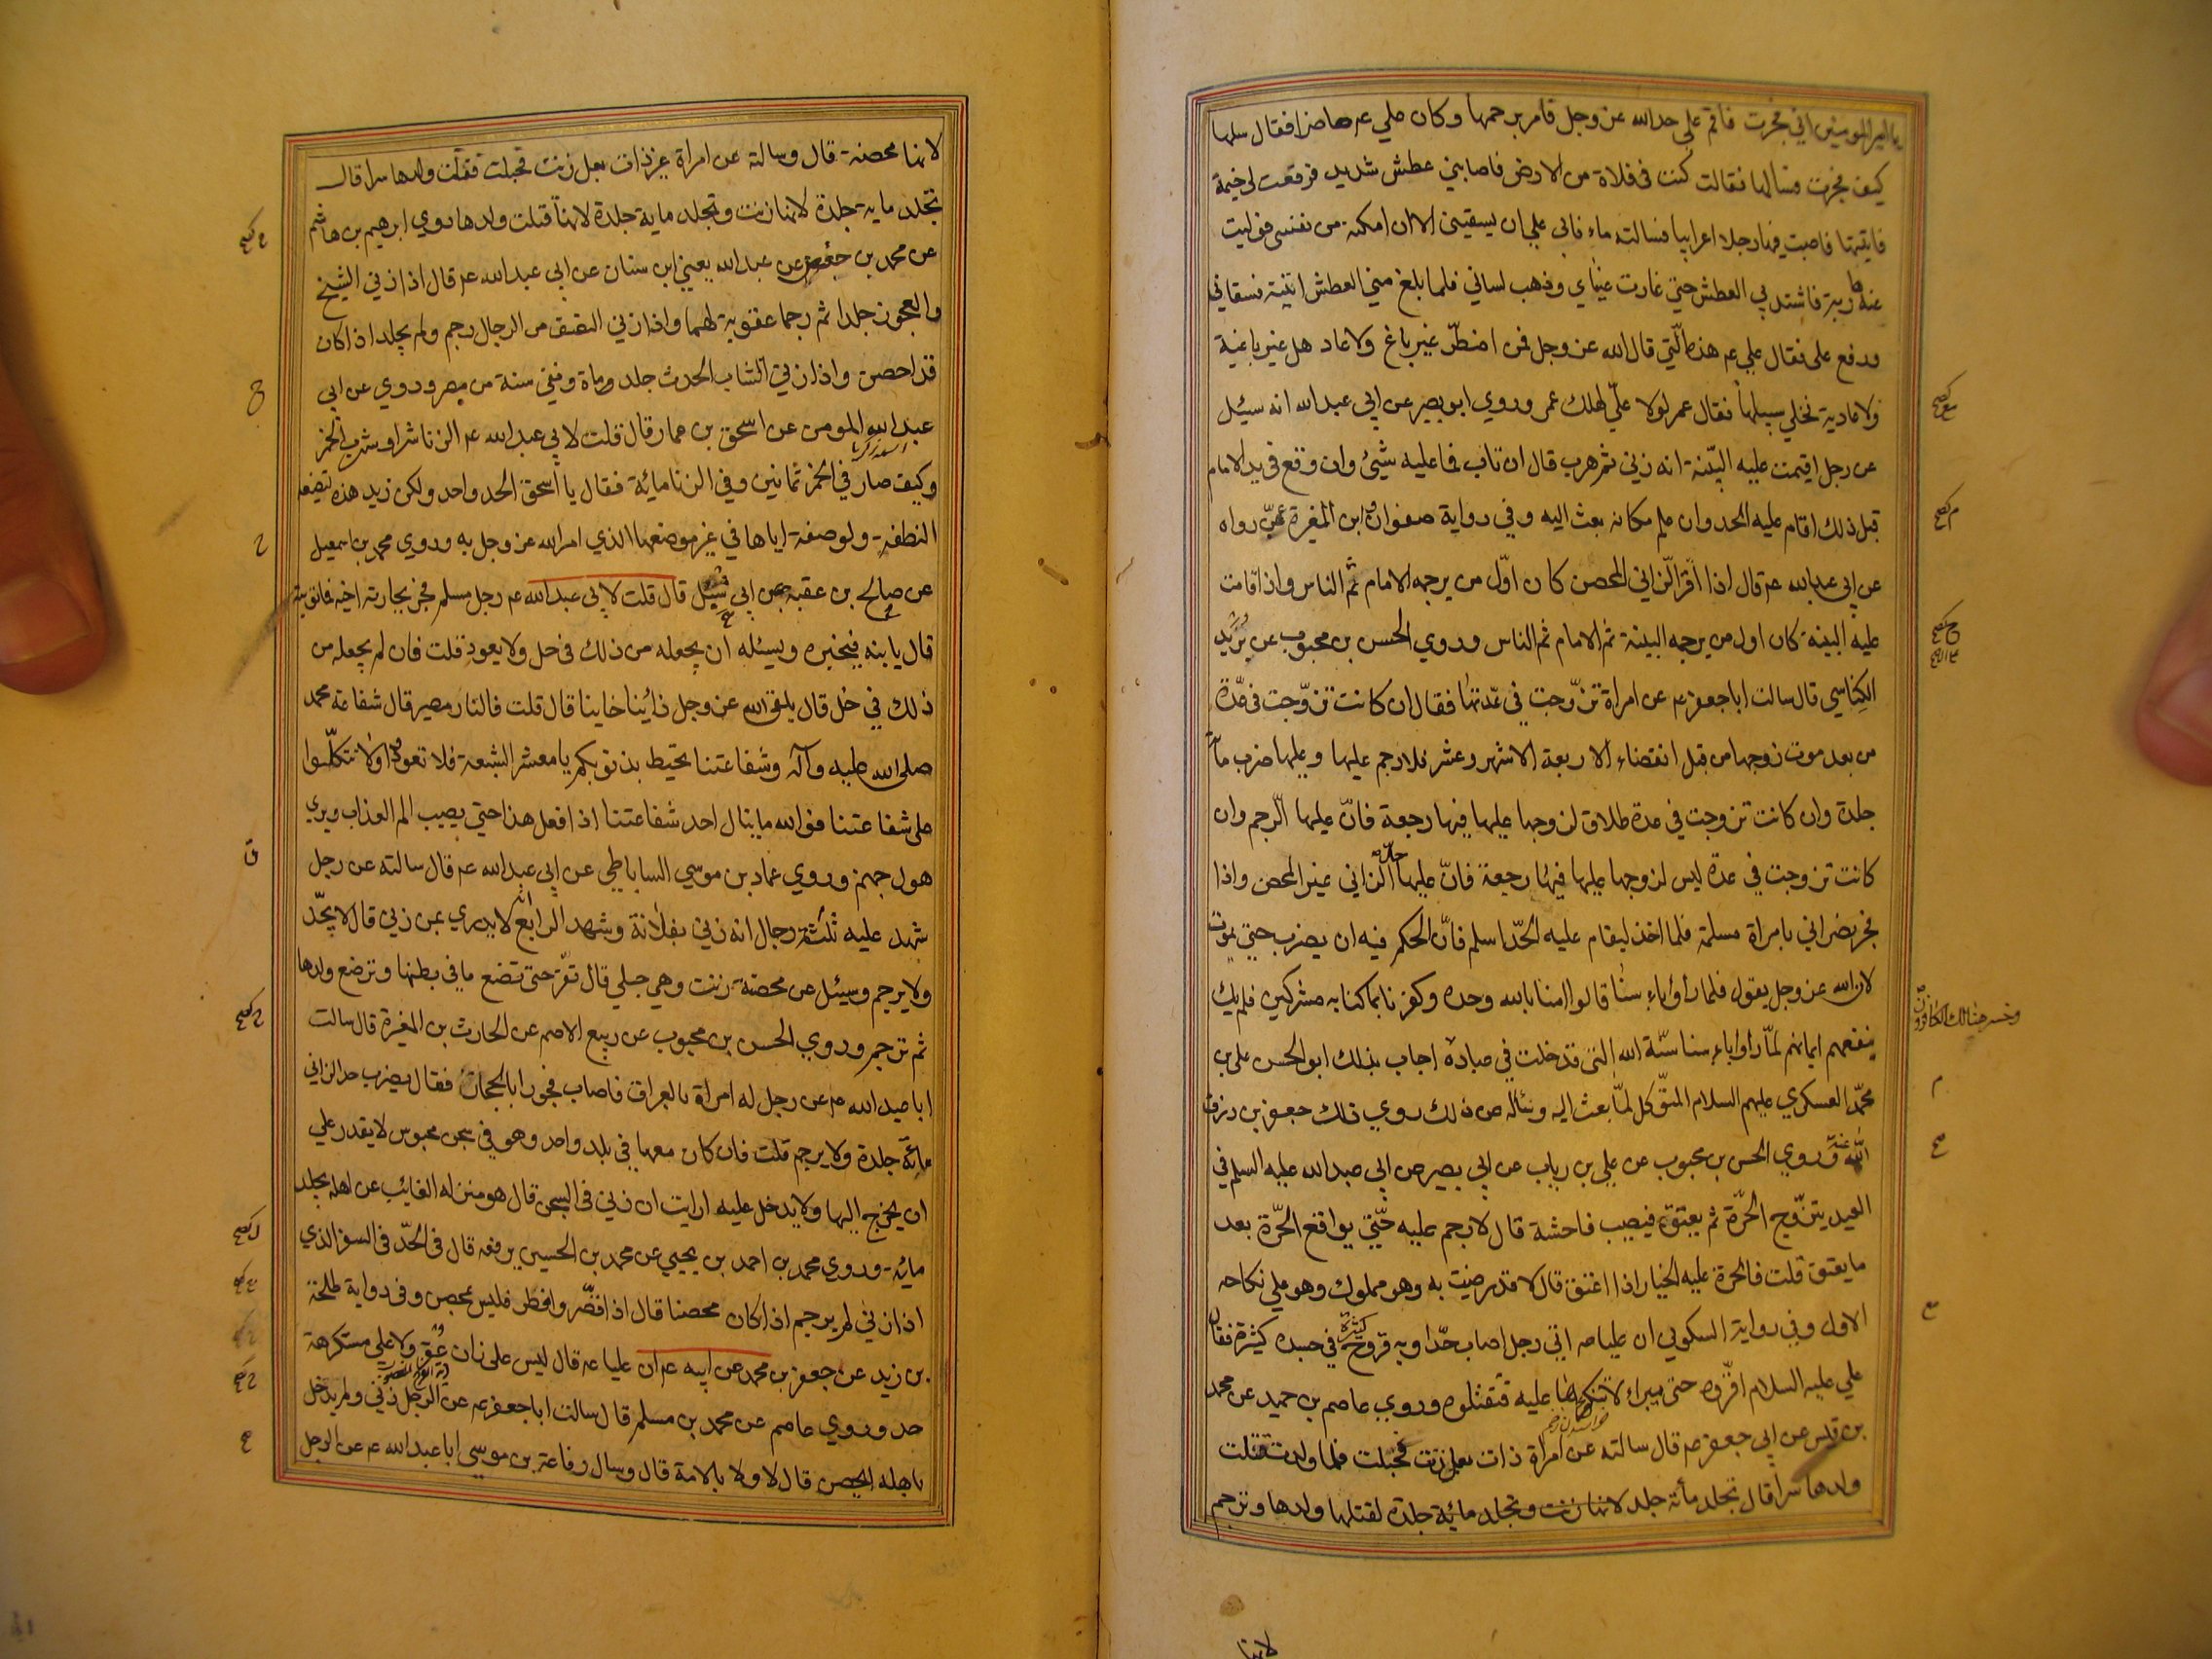 يا امير المومنين اني فجرت فاقم على حد الله عز وجل فامر برجمها وكان علي عم حاضرا فقال سلها
كيف فجرت فسالها فقالت كنت في فلاة من الارض فاصابني عطش شديد فرفعت لي خيمة
فاتيتها فاصبت فيها رجلا اعرابيا فسالته ماء فابى علي ان يسقيني الا ان امكنه من نفسي فوليت
عنه هاربة فاشتد بي العطش حتى غارت عيناي وذهب لساني فلما بلغ مني العطش اتيته فسقاني
ووقع على فقال علي عم هذه التي قال الله عز وجل فمن اضطر غير باغ ولا عاد هل غير باغية
ولا عادية فخلي سبيلها فقال عمر لولا علي لهلك عمر وروي ابو بصير عن ابي عبد الله انه سئل
عن رجل اقيمت عليه البينة انه زني ثم هرب قال ان تاب فما عليه شئ وان وقع في يد الامام
قبل ذلك اقام عليه الحد وان علم مكانه بعث اليه وفي رواية صفوان وابن المغيرة عمن رواه
عن ابي عبد الله عم قال اذا اقر الزاني المحصن كان اول من يرجمه الامام ثم الناس واذا قامت
عليه البينة كان اول من يرجمه البينة ثم الامام ثم الناس وروي الحسن بن محبوب عن يزيد
الكناسي قال سالت ابا جعفر عم عن امراة تزوجت في عدتها فقال ان كانت تزوجت في عدة
من بعد موت زوجها من قبل انقضاء الاربعة الاشهر وعشر فلا رجم عليها وعليها ضرب مائة
جلدة وان كانت تزوجت في عدة طلاق لزوجها عليها فيها رجعة فان عليها الرجم وان
كانت تزوجت في عدة ليس لزوجها عليها فيها رجعة فان عليها حد الزاني غير المحصن واذا
فجر نصراني بامراة مسلمة فلما اخذ ليقام عليه الحد اسلم فان الحكم فيه ان يضرب حتى يموت
لان الله عز وجل يقول فلما راوا باءسنا قالوا امنا بالله وحده وكفرنا بما كنا به مشركين فلم يك
ينفعهم ايمانهم لما راوا باءسنا سنة الله التي قد خلت في عباده اجاب بذلك ابو الحسن علي بن
وخسر هنالك الكافرون
محمد العسكري عليهم السلام المتوكل لما بعث اليه وسئاله عن ذلك روي ذلك جعفر بن رزق
الله عنه وروي الحسن بن محبوب عن علي بن رياب عن ابي بصير عن ابي عبد الله عليه السلم في
العبد يتزوج الحرة ثم يعتق فيصيب فاحشة قال لا رجم عليه حتى يواقع الحرة بعد
ما يعتق قلت فالحرة عليه الخيار اذا اعتق قال لا قد رضيت به وهو مملوك وهو على نكاحه
الاول وفي رواية السكوني ان عليا عم اتي رجل اصاب حدا وبه قروح في جسده كثيرة فقال
علي عليه السلام اقروه حتى يبراء لا تنكؤها عليه فتقتلوه وروي عاصم بن حميد عن محمد
بن قيس عن ابي جعفر عم قال سالته عن امراة ذات بعل زنت فحبلت فلما ولدت قتلت
ولدها سرا قال تجلد مأئة جلد لانها زنت وتجلد مائة جلدة لقتلها ولدها وترجم
لانها
لانها محصنة قال وسالته عن امراة غير ذات بعل زنت فحبلت فقتلت ولدها سرا قال
تجلد ماية جلدة لانها زنت وتجلد ماية جلدة لانها قتلت ولدها روي ابرهيم بن هاشم
عن محمد بن جعفر عن عبد الله يعني ابن سنان عن ابي عبد الله عم قال اذا زني الشيخ
والعجوز جلدا ثم رجما عقوبة لهما واذا زني النصف من الرجال رجم ولم يجلد اذا كان
قد احصن واذا زني الشاب الحدث جلد وماة ونفي سنة من مصره وروي عن ابي
عبد الله المومن عن اسحق بن عمار قال قلت لابي عبد الله عم الزنا شر او شرب الخمر
وكيف صار في الخمر ثمانين وفي الزنا مائة فقال يا اسحق الحد واحد ولكن زيد هذه لتضيعه
النطفة ولوضعه اياها في غير موضعها الذي امر الله عز وجل به وروي محمد بن اسمعيل
عن صالح بن عقبة عن ابي شبل قال قلت لابي عبد الله عم رجل مسلم فجر بجارية اخيه فما توبته
قال ياتيه فيخبره ويسئله ان يجعله من ذلك في حل ولا يعود قلت فان لم يجعله من
ذلك في حل قال يلقى الله عز وجل زانيا خاينا قال قلت فالنار مصيره قال شفاعة محمد
صلى الله عليه وآله وشفاعتنا تحيط بذنوبكم يا معشر الشيعة فلا تعودوا ولا تتكلوا
على شفاعتنا فو الله ما ينال احد شفاعتنا اذا فعل هذا حتى يصيب الم العذاب ويري
هول جهنم وروي عمار بن موسي الساباطي عن ابي عبد الله عم قال سالته عن رجل
شهد عليه ثلثة رجال انه زني بفلانة وشهد الرابع انه لا يدري بمن زني قال لا يحد
ولا يرجم وسئل عن محصنة زنت وهي حبلي قال تقر حتى تضع ما في بطنها وترضع ولدها
ثم ترجم وروي الحسن بن محبوب عن ربيع الاصم عن الحارث بن المغيرة قال سالت
ابا عبد الله عم عن رجل له امراة بالعراق فاصاب فجورا بالحجاز فقال يضرب حد الزاني
مائة جلدة ولا يرجم قلت فان كان معها في بلد واحد وهو في سجن محبوس لا يقدر على
ان يخرج اليها ولا يدخل عليه ارايت ان زني في السجن قال هو بمنزلة الغايب عن اهله يجلد
مائة وروي محمد بن احمد بن يحيي عن محمد بن الحسين يرفعه قال في الحد في السفر الذي
اذا زني لم يرجم اذا كان محصنا قال اذا قصر وافطر فليس بمحصن وفي رواية طلحة
بن زيد عن جعفر بن محمد عن ابيه عم ان عليا عم قال ليس على زان عقر ولا على مستكرهة
حد وروي عاصم عن محمد بن مسلم قال سالت ابا جعفر عم عن الرجل زني ولم يدخل
باهله ايحصن قال لا ولا بالامة قال وسال رفاعة بن موسي ابا عبد الله عم عن الرجل